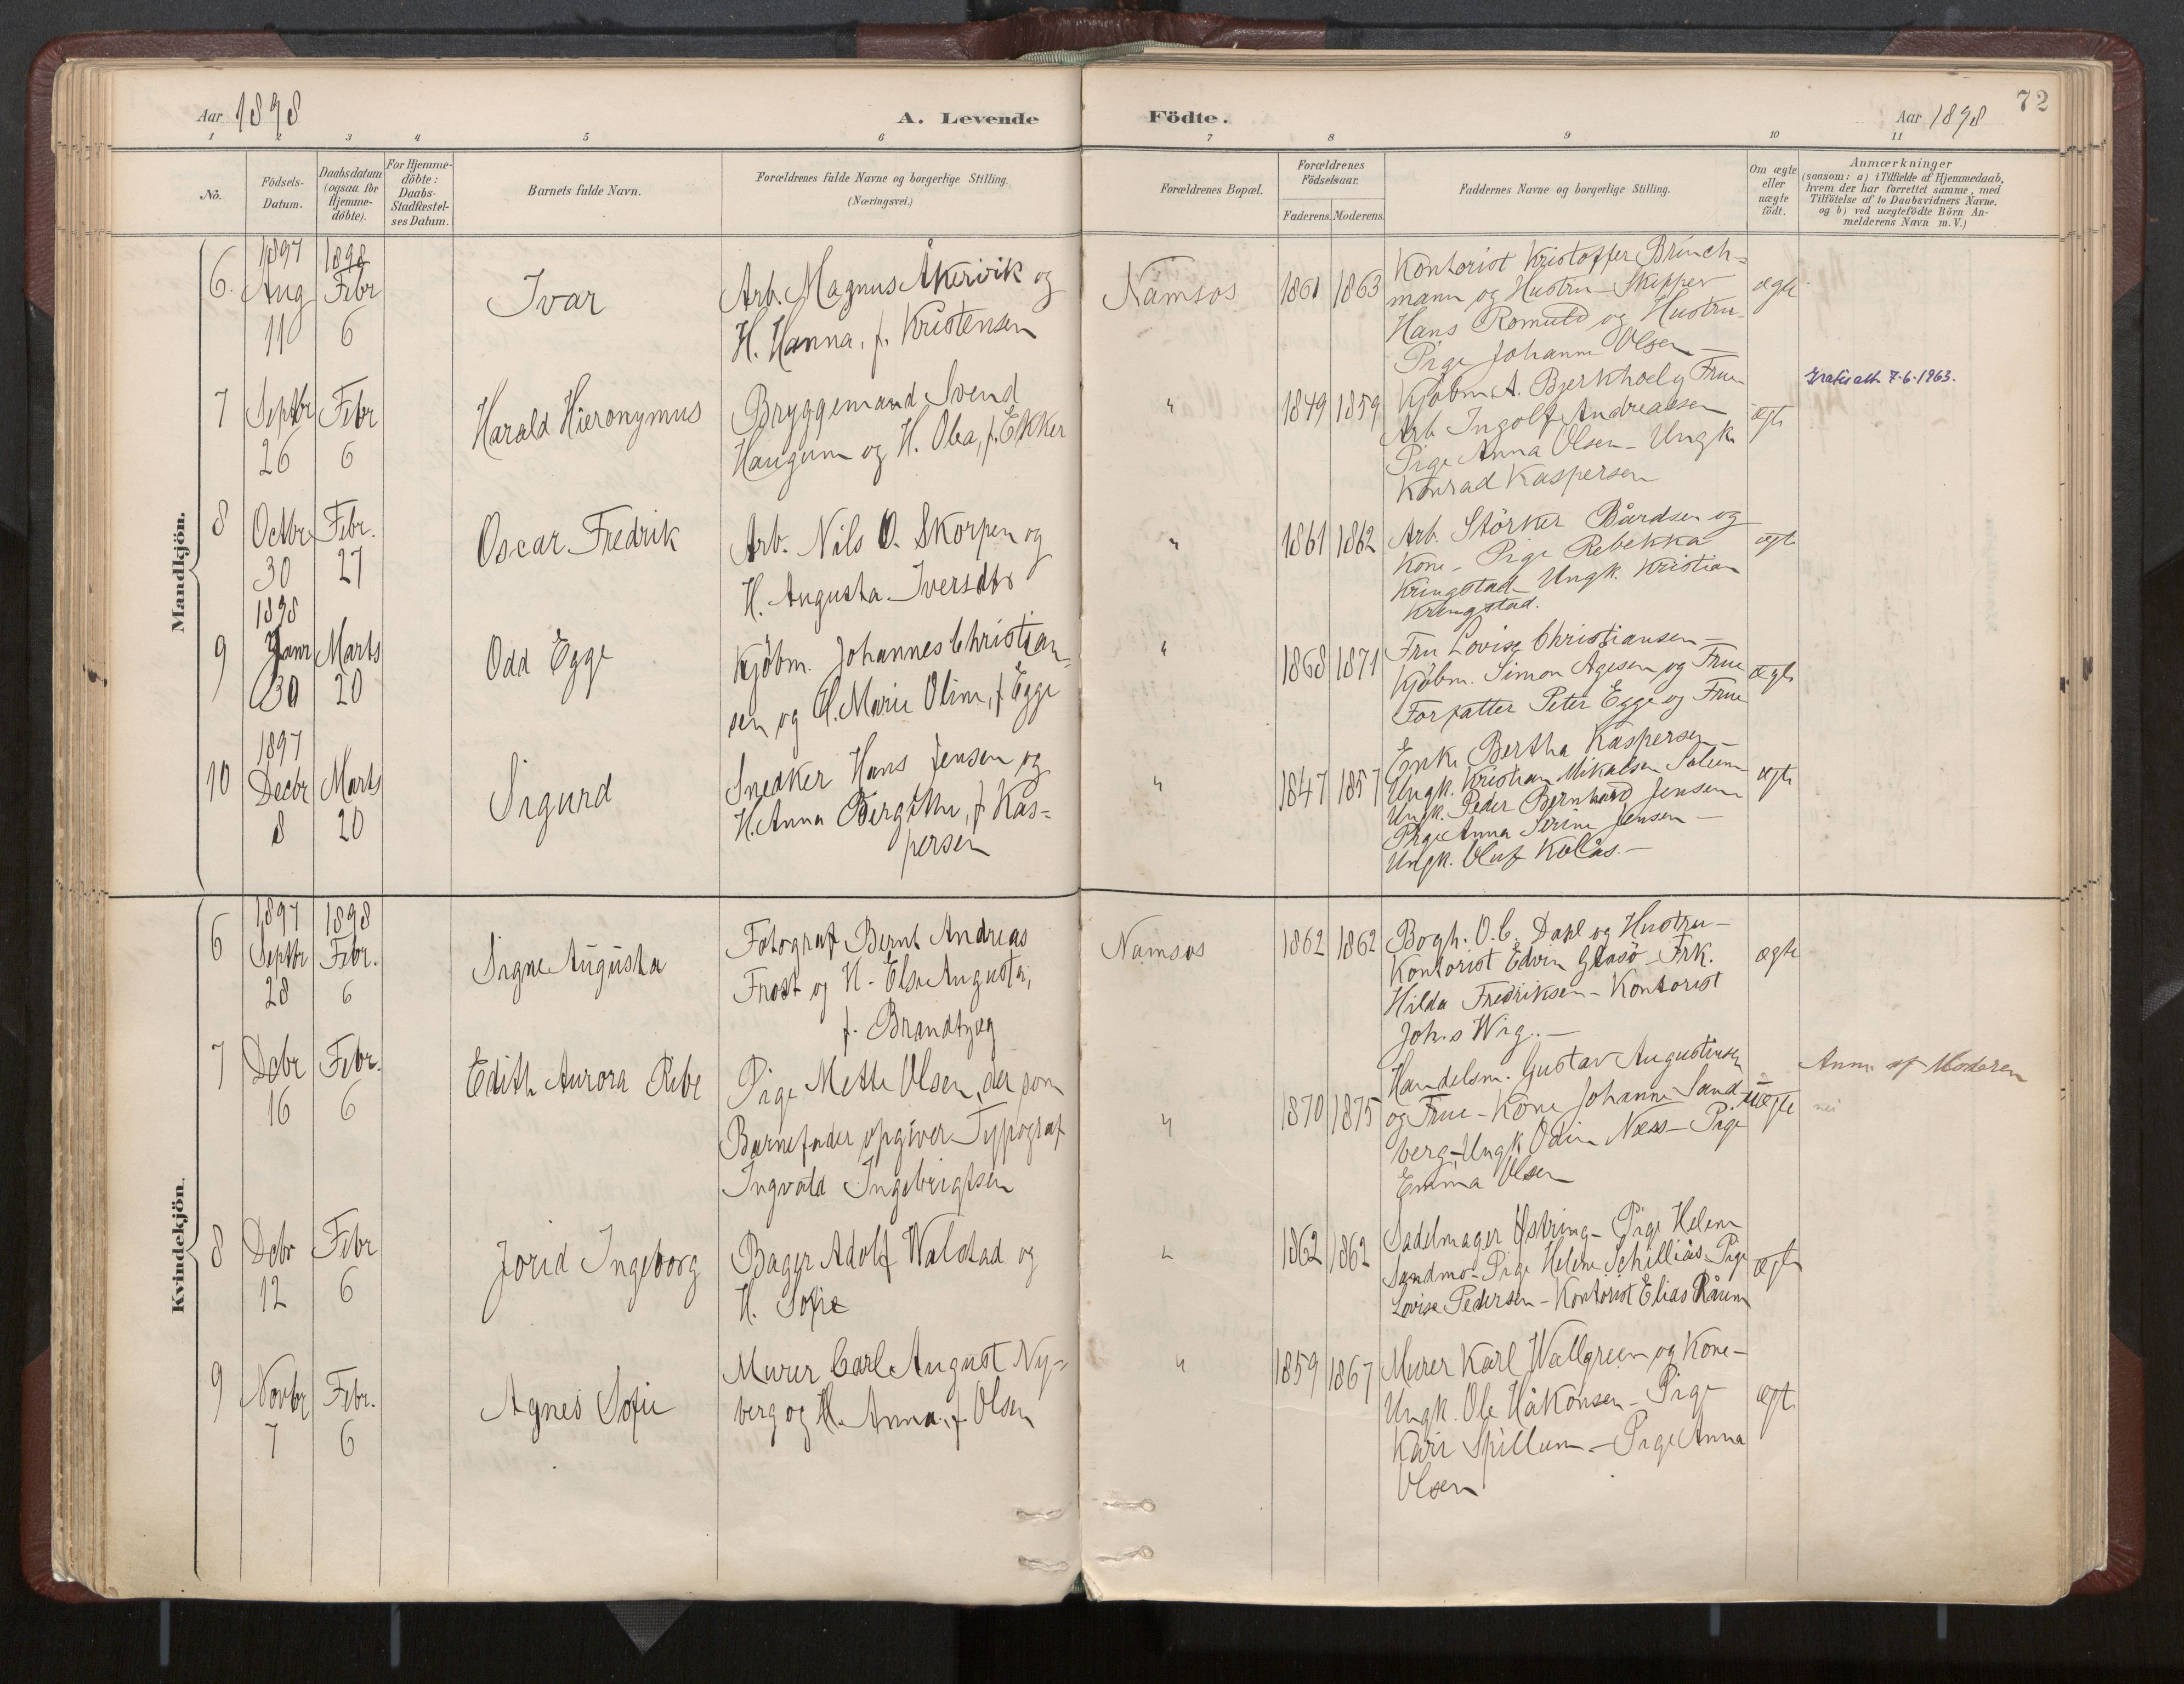 Aar 1898
A. Levende
Födte.
Aar 1898
72
1 2 3 4 5 6 7 8 9 10 11
No.
Födsels-
Datum.
Daabsdatum
(ogsaa for
Hjemme-
döbte).
For Hjemme-
döbte:
Daabs-
Stadfæstel-
ses Datum.
Barnets fulde Navn.
Forældrenes fulde Navne og borgerlige Stilling.
(Næringsvei.)
Forældrenes Bopæl.
Forældrenes
Födselsaar.
Faderens. Moderens.
Faddernes Navne og borgerlige Stilling.
Om ægte
eller
uægte
födt.
Anmærkninger
(saasom: a) i Tilfælde af Hjemmedaab,
hvem der har forrettet samme, med
Tilföielse af to Daabsvidners Navne.
og b) ved uægtefödte Börn An-
melderens Navn m. V.)
Mandkjön.
6.
1897
Aug
11
1898
Febr
6
Ivar
Arb. Magnus Åkervik og
H. Hanna, f. Kristensen
Namsos
1861 1863
Kontorist Kristoffer Brinch-
mann og Hustru - Skipper
Hans Romuld og Hustru -
Pige Johanne Olsen -
ægte
7
Septbr
26
Febr
6
Harald Hieronymus
Bryggemand Svend
Haugum og H. Olea, f. Ekker
"
1849 1859
Kjöbm. A. Bjerkhoel og Frue
Arb Ingolf Andreassen
Pige Anna Olsen - Ungk.
Konrad Kaspersen
ægte
Gratis att. 7-6-1963.
8
Octbr
30
Febr.
27
Oscar Fredrik
Arb. Nils O. Skorpen og
H. Augusta Iversdtr
"
1861 1862
Arb. Störker Bårdsen og
Kone - Pige Rebekka
Kringstad - Ungk. Kristian
Kringstad.
ægte
9
1898
Janr
30
Marts
20
Odd Egge
Kjöbm. Johannes Christian-
sen og H. Marie Oline, f. Egge
"
1868 1871
Fru Lovise Christiansen -
Kjöbm. Simon Agesen og Frue
Forfatter Peter Egge og Frue
ægte
10
1897
Decbr
8
Marts
20
Sigurd
Snedker Hans Jensen og
H. Anna Bergithe, f. Kas-
persen
"
1847 1857
Enke Bertha Kaspersen -
Ungk. Kristian Mikalsen
Ungk. Peder Bernhard Jensen
Pige Anna Serine Jensen -
Ungk. Oluf Kolås. -
ægte
Kvindekjön.
6
1897
Septbr
28
1898
Febr.
6
Signe Augusta
Fotograf Bernt Andreas
Frost og H. Else Augusta,
f. Brandtzæg
Namsos
1862 1862
Bogh. O. C. Dahl og Hustru -
Kontorist Edvin Glasö - Frk.
Hilda Fredriksen - Kontorist
Johs Wiig. -
ægte
7
Debr
16
Febr.
6
Edith Aurora Rebe
Pige Mette Olsen, der som
Barnefader opgiver Typograf
Ingvald Ingebrigtsen
"
1870 1875
Handelsm. Gustav Augustinsen
og Frue - Kone Johanne Sand-
berg - Ungk Odin Næss - Pige
Emma Olsen
uægte
Anm. af Moderen
nei
8
Debr
12
Febr
6
Jorid Ingeborg
Bager Adolf Walstad og
H. Sofie
"
1862 1862
Sadelmager Østring - Pige Helene
Sandmo - Pige Helene Schilliås - Pige
Lovise Pedersen - Kontorist Elias Råum
ægte
9
Novbr
7
Febr.
6
Agnes Sofie
Murer Carl August Ny-
berg og H. Anna, f. Olsen
"
1859 1867
Murer Karl Wallgreen og Kone -
Ungk. Ole Håkonsen - Pige
Kari Spillum - Pige Anna
Olsen
ægte